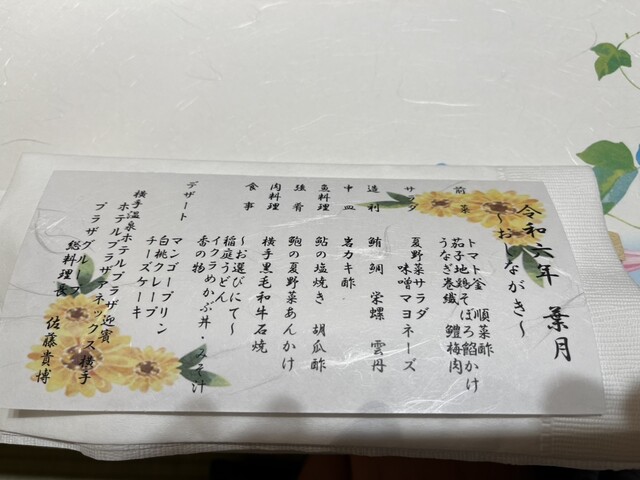 令和六年 葉月
～おしながき～
前菜 トマト釜 順菜酢
茄子地鶏そぼろ餡かけ
うなぎ巻繊 鱧梅肉
サラダ 夏野菜サラダ
味噌マヨネーズ
造利 鮪 鯛 栄螺 雲丹
中皿 岩カキ酢
魚料理 鮎の塩焼き 胡瓜酢
強肴 鮑の夏野菜あんかけ
肉料理 横手黒毛和牛石焼
食事 ～お選びにて～
稲庭うどん
イクラめかぶ丼・みそ汁
香の物
デザート マンゴープリン
白桃クレープ
チーズケーキ
横手温泉ホテルプラザ迎賓
ホテルプラザアネックス横手
プラザグループ
総料理長 佐藤貴博